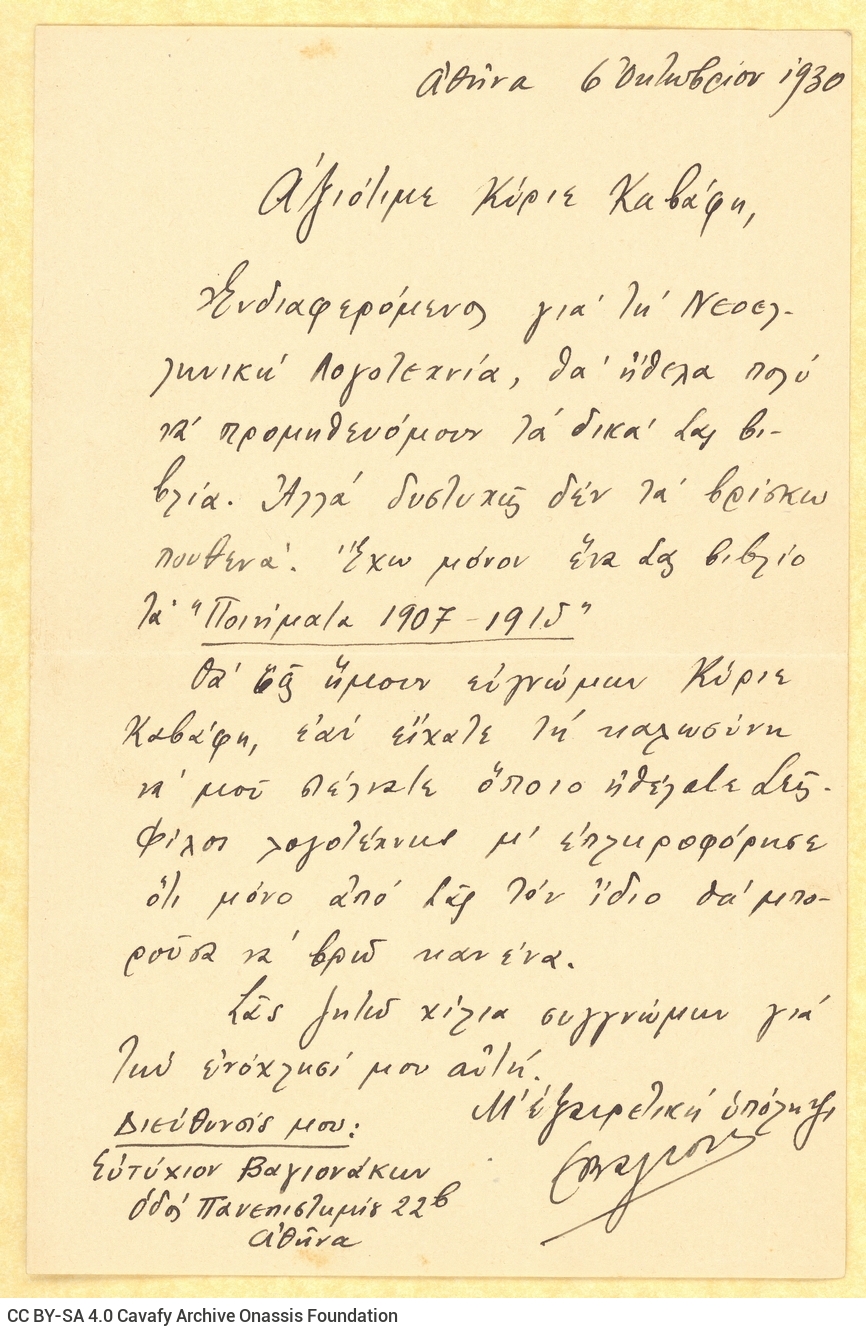 Ἀθῆνα 6 Ὀκτωβρίου 1930
Ἀξιότιμε Κύριε Καβάφη,
Ἐνδιαφερόμενος γιὰ τὴ Νεοελ-
ληνικὴ Λογοτεχνία, θὰ ἤθελα πολύ
νὰ προμηθευόμουν τὰ δικά Σας βι-
βλία. Ἀλλὰ δυστυχῶς δὲν τὰ βρίσκω
πουθενὰ. Ἔχω μόνον ἕνα Σας βιβλίο
τὰ "Ποιήματα 1907-1915"
θὰ σᾶς ἤμουν εὐγνώμων Κύριε
Καβάφη, ἐὰν εἴχατε τὴ καλωσύνη
νὰ μοῦ στέλνατε ὅποιο ἠθέλατε Σεῖς.
Φίλος λογοτέχνης μ' ἐπληροφόρησε
ὅτι μόνο ἀπό Σᾶς τόν ἴδιο θὰ μπο-
ροῦσα νὰ βρῶ κανένα.
Σᾶς ζητῶ χίλια συγγνώμην γιά
τὴν ἐνόχλησί μου αὐτή.
Μ' ἐξαιρετικὴ ὑπόληψι
Διεύθυνσίς μου:
Εὐτύχιον Βαγιονάκην
ὁδός Πανεπιστημίου 22β
Ἀθῆνα
CC BY-SA 4.0 Cavafy Archive Onassis Foundation